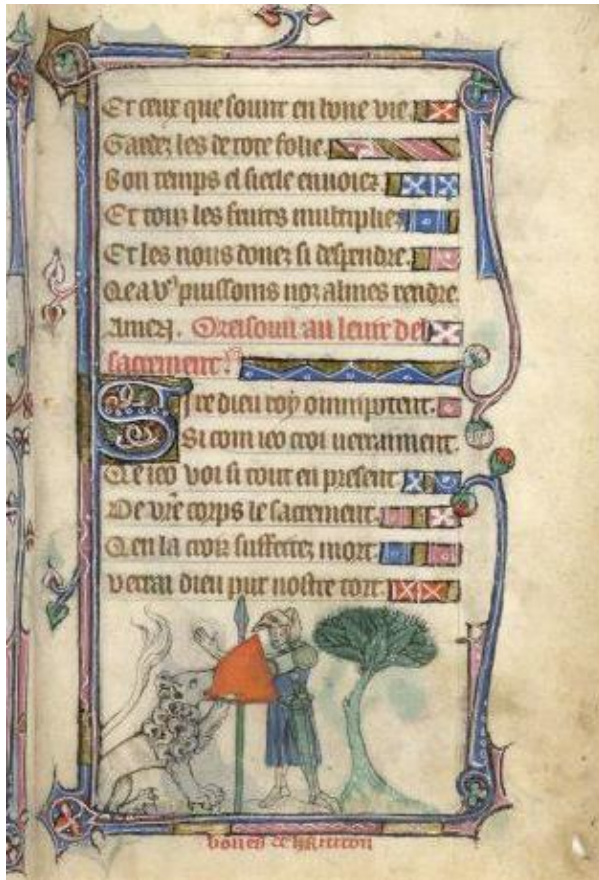 Et ceux que sount en bone vie.
Gardez les de tote folie.
Bon temps el siecle enuoiez
Et touz les fruits multiplie
Et les nous donez si despendre.
Qe a vꝰ puissoms noz almes rendre.
Amen. Oreisoun au leuer del
sacrement.
Sire dieu roy omnipotent.
Si com ieo croi uerraiment.
Qe ieo voi si tout en present
De vr̄e corps le sacrement.
Qen la croiz suffretez mort
verrai dieu pur nostre tort.